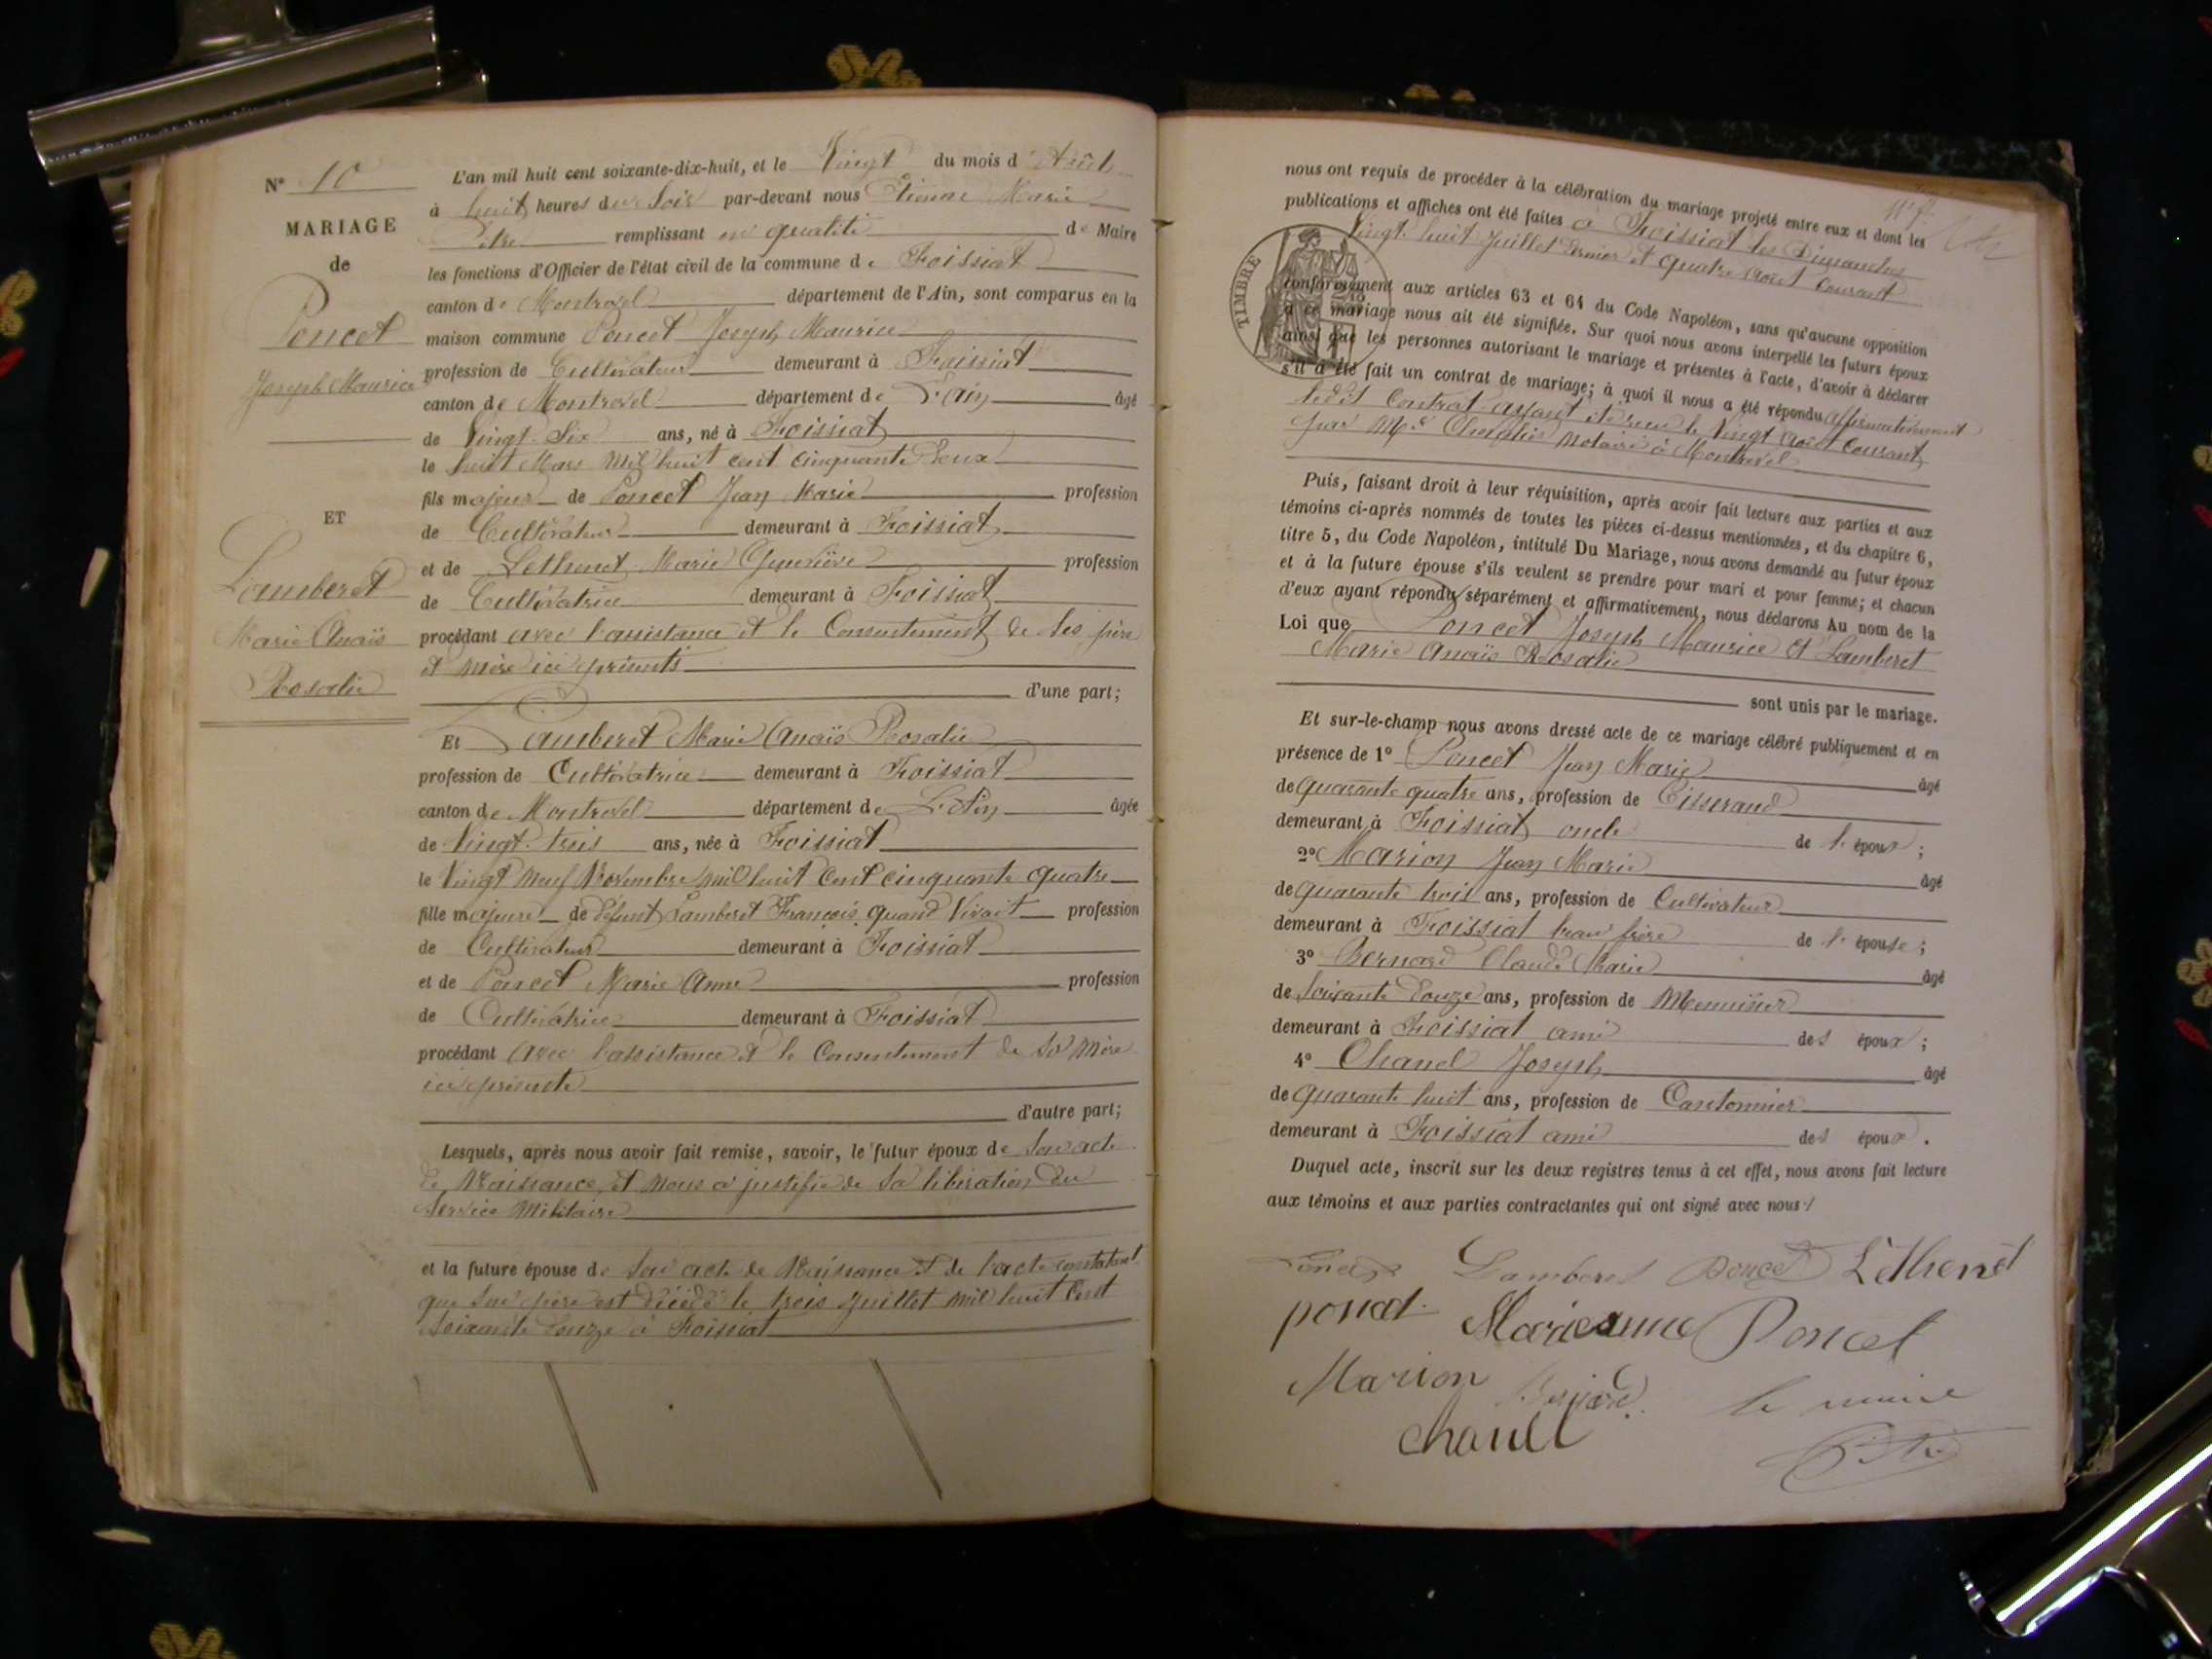 N° 10
MARIAGE
de
Poncet
Joseph Maurice
ET
Lamberet
Marie Anaïs
Rosalie
L'an mil huit cent soixante-dix-huit, et le Vingt du mois d'Août
à huit heures du Soir par-devant nous Etienne Marie
remplissant en qualité de Maire
les fonctions d'Officier de l'état civil de la commune de Foissiat
canton de Montrevel département de l'Ain, sont comparus en la
maison commune Poncet Joseph Maurice
profession de Cultivateur demeurant à Foissiat
canton de Montrevel département de L'Ain âgé
de Vingt-Six ans, né à Foissiat
le huit Mars Mil huit cent cinquante Deux
fils majeur de Poncet Jean Marie profession
de Cultivateur demeurant à Foissiat
et de Lethenet Marie Geneviève profession
de Cultivatrice demeurant à Foissiat
procédant avec l'assistance et le Consentement de Ses père
et mère ici présents
d'une part;
Et Lamberet Marie Anaïs Rosalie
profession de Cultivatrice demeurant à Foissiat
canton de Montrevel département de L'Ain âgée
de Vingt-trois ans, née à Foissiat
le Vingt Neuf Novembre mil huit Cent cinquante quatre
fille majeure de défunt Lamberet François quand Vivait profession
de Cultivateur demeurant à Foissiat
et de Poncet Marie Anne profession
de Cultivatrice demeurant à Foissiat
procédant avec l'assistance et le Consentement de Sa Mère
ici présente
d'autre part;
Lesquels, après nous avoir fait remise, savoir, le futur époux de Son acte
de Naissance et nous a justifié de Sa libération du
Service Militaire
et la future épouse de Son acte de Naissance et de l'acte constatant
que Son père est Décédé le trois Juillet mil huit Cent
Soixante Douze à Foissiat
nous ont requis de procéder à la célébration du mariage projeté entre eux et dont les
publications et affiches ont été faites à Foissiat les Dimanches
Vingt-huit Juillet Dernier et quatre Août Courant
TIMBRE
conformément aux articles 63 et 64 du Code Napoléon, sans qu'aucune opposition
à ce mariage nous ait été signifiée. Sur quoi nous avons interpellé les futurs époux
ainsi que les personnes autorisant le mariage et présentes à l'acte, d'avoir à déclarer
s'il a été fait un contrat de mariage; à quoi il nous a été répondu affirmativement
ledit Contrat ayant été reçu le Vingt Août Courant
par Me Chevalier Notaire à Montrevel
Puis, faisant droit à leur réquisition, après avoir fait lecture aux parties et aux
témoins ci-après nommés de toutes les pièces ci-dessus mentionnées, et du chapitre 6,
titre 5, du Code Napoléon, intitulé Du Mariage, nous avons demandé au futur époux
et à la future épouse s'ils veulent se prendre pour mari et pour femme; et chacun
d'eux ayant répondu séparément et affirmativement, nous déclarons Au nom de la
Loi que Poncet Joseph Maurice et Lamberet
Marie Anaïs Rosalie
sont unis par le mariage.
Et sur-le-champ nous avons dressé acte de ce mariage célébré publiquement et en
présence de 1° Poncet Jean Marie âgé
de quarante quatre ans, profession de Tisserand
demeurant à Foissiat oncle de l'époux;
2° Marion Jean Marie âgé
de quarante trois ans, profession de Cultivateur
demeurant à Foissiat beau frère de l'épouse;
3° Bernard Claude Marie âgé
de Soixante Douze ans, profession de Menuisier
demeurant à Foissiat ami des époux;
4° Chanel Joseph âgé
de quarante huit ans, profession de Cantonnier
demeurant à Foissiat ami des époux.
Duquel acte, inscrit sur les deux registres tenus à cet effet, nous avons fait lecture
aux témoins et aux parties contractantes qui ont signé avec nous
Poncet Lamberet Poncet Lethenet
poncet Marieanne Poncet
Marion Bernard le maire
chanel